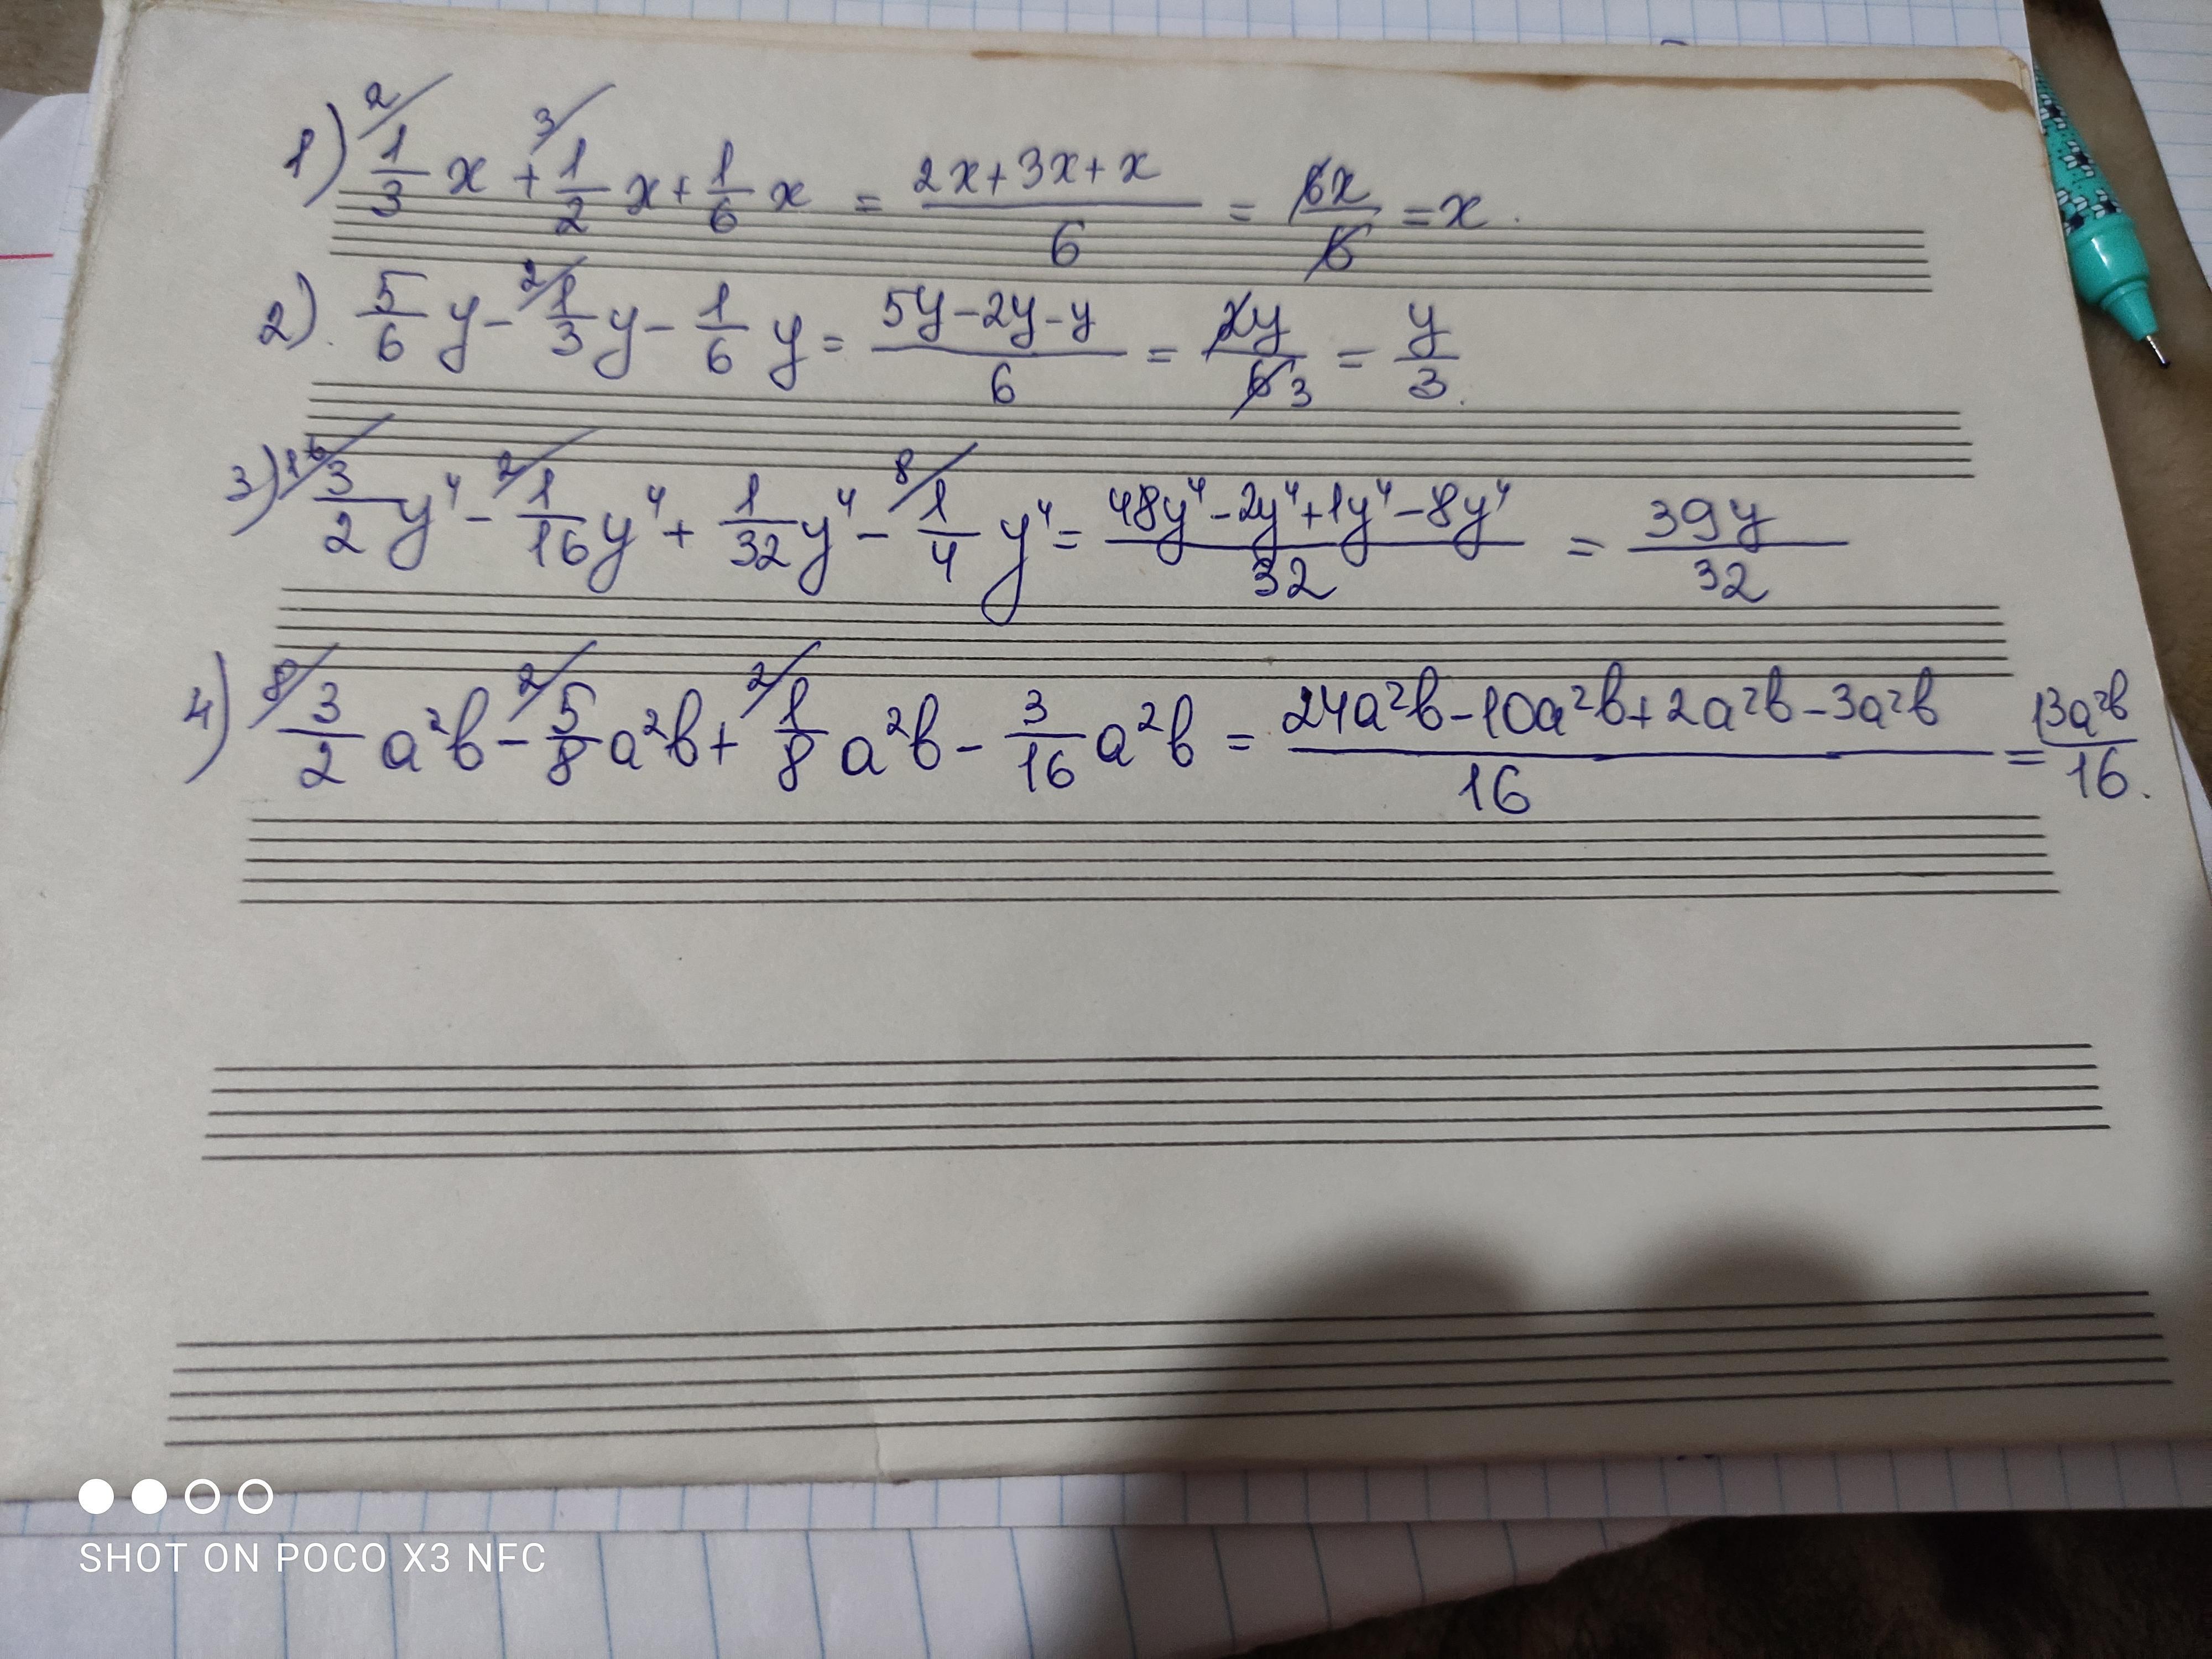 1) 2/ 1/3 x + 3/ 1/2 x + 1/6 x = (2x+3x+x)/6 = 6x/6 = x.
2). 5/6 y - 2/ 1/3 y - 1/6 y = (5y-2y-y)/6 = 2y/6 3 = y/3.
3) 16/ 3/2 y⁴ - 2/ 1/16 y⁴ + 1/32 y⁴ - 8/ 1/4 y⁴ = (48y⁴-2y⁴+1y⁴-8y⁴)/32 = 39y/32
4) 8/ 3/2 a²b - 2/ 5/8 a²b + 2/ 1/8 a²b - 3/16 a²b = (24a²b-10a²b+2a²b-3a²b)/16 = 13a²b/16.
SHOT ON POCO X3 NFC